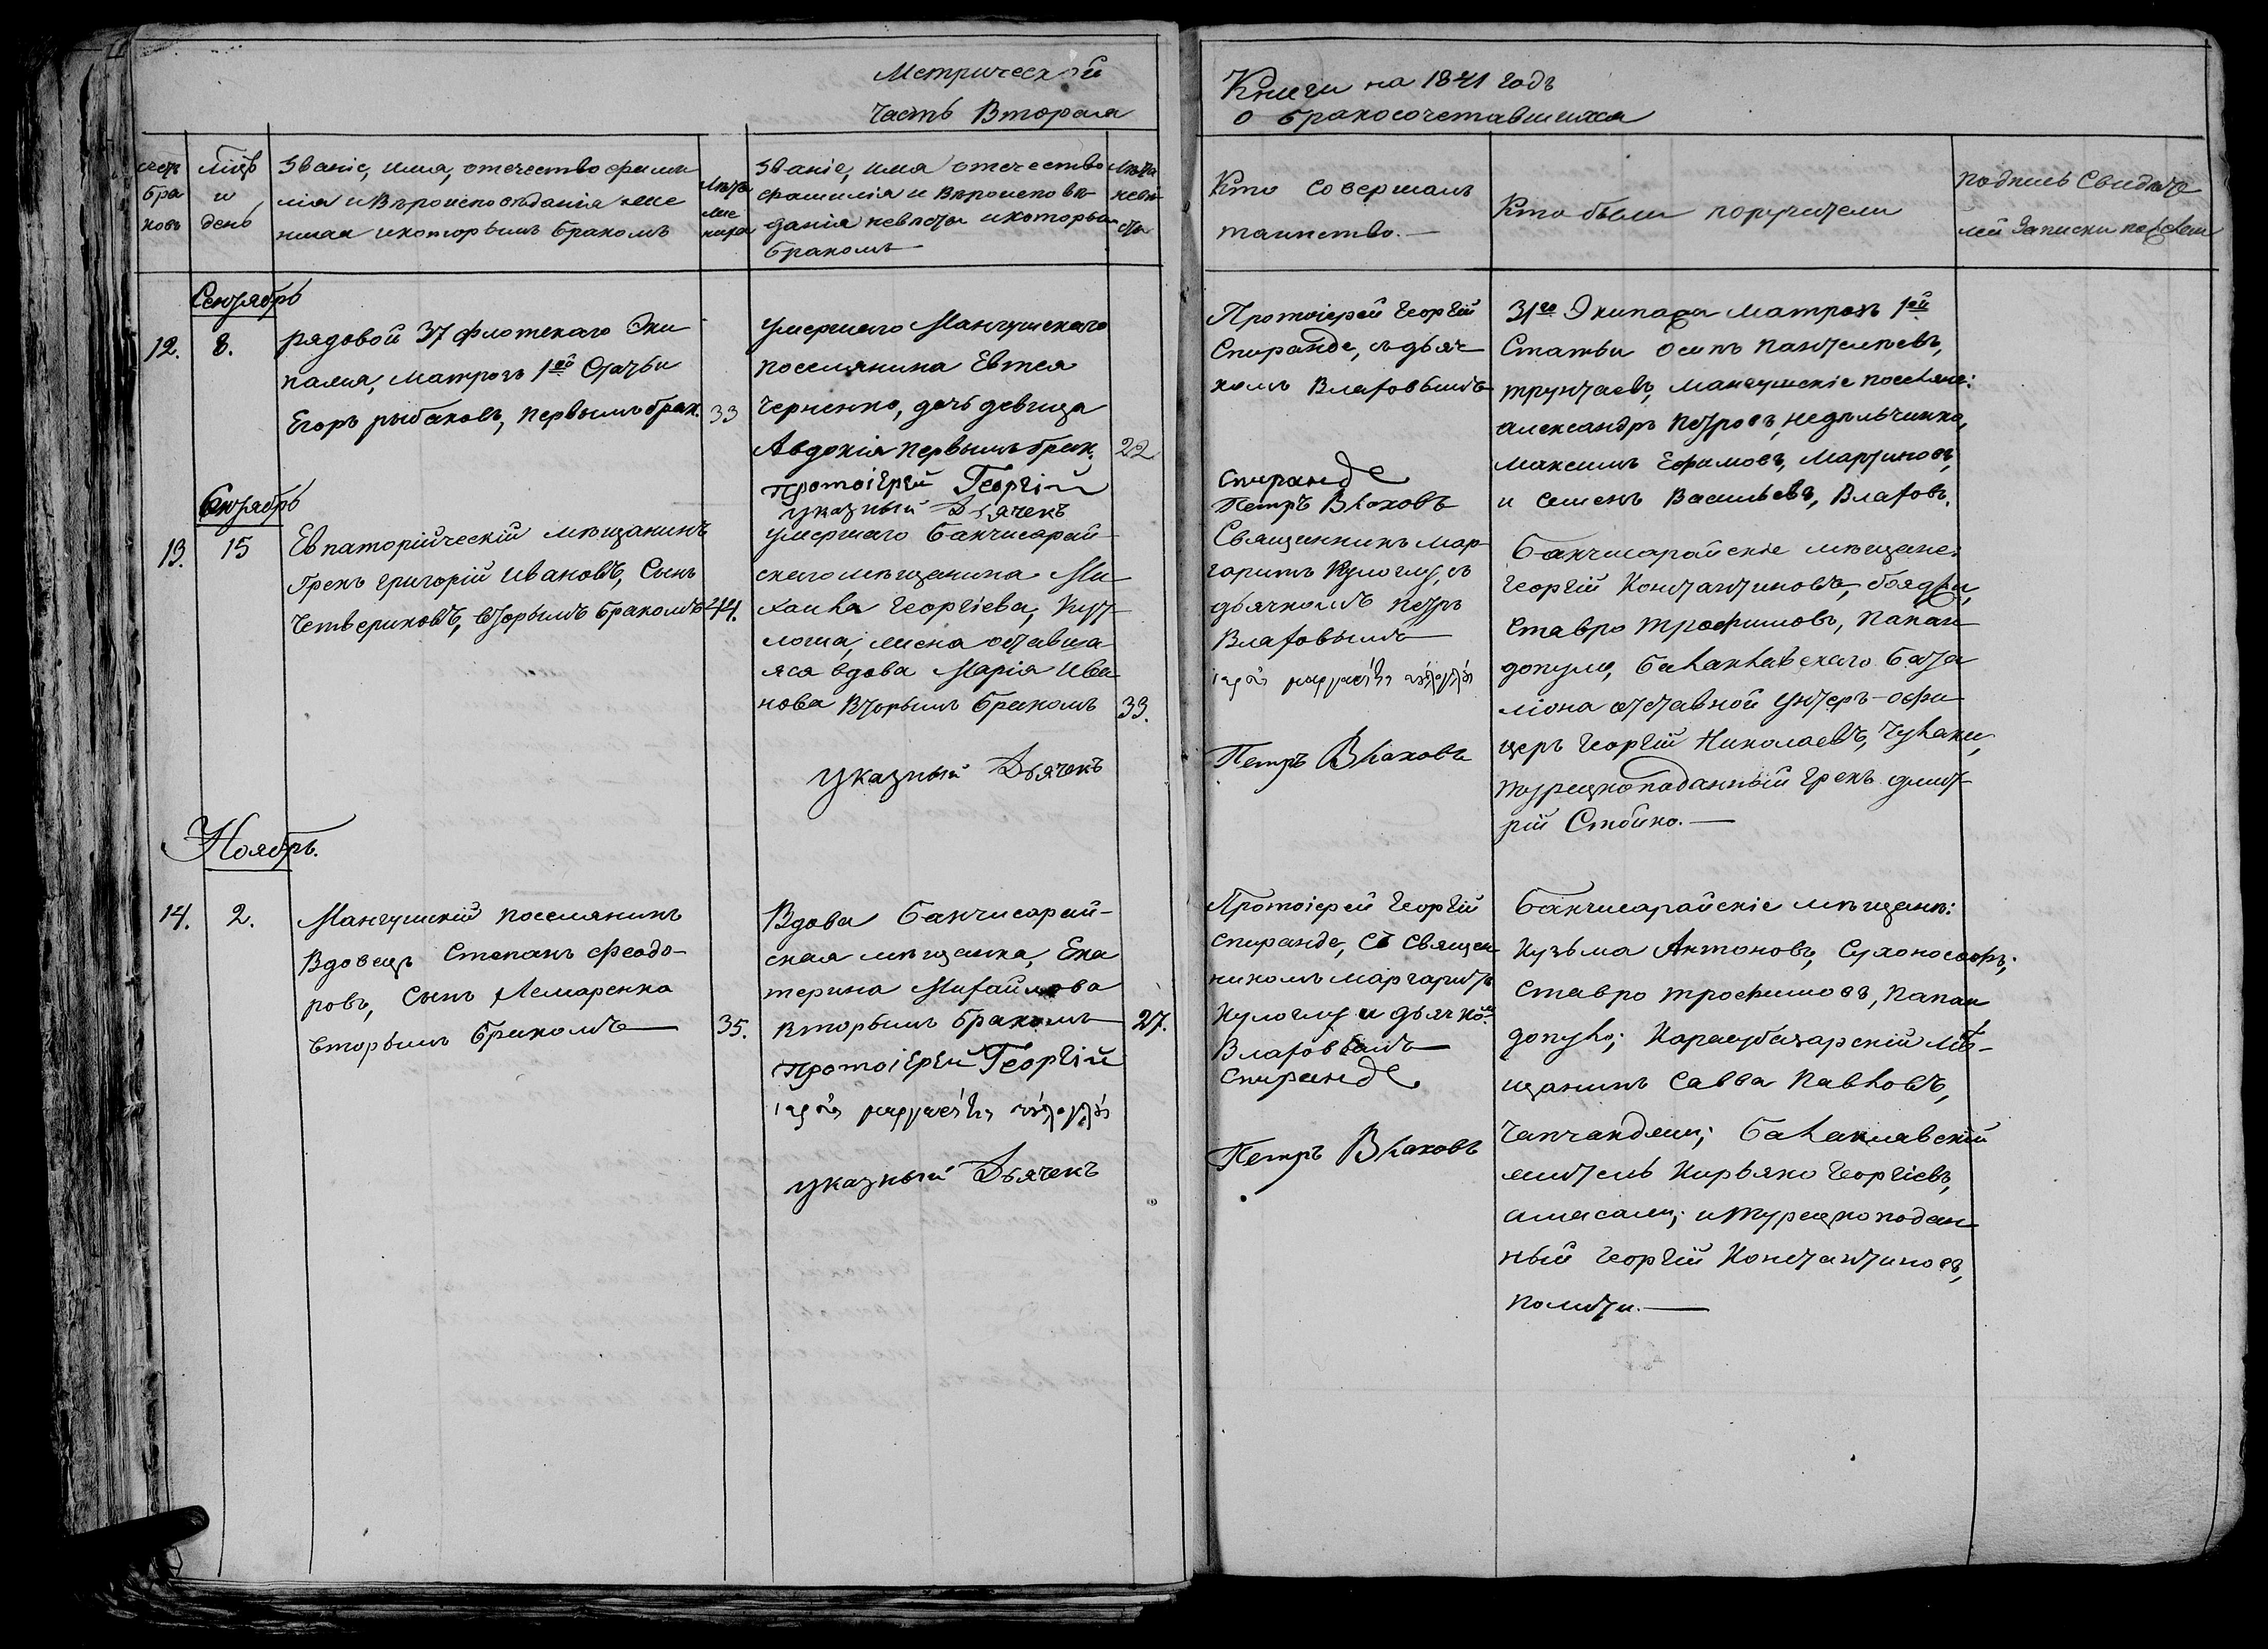 Метрической
Часть Вторая
Книги на 1841 годъ
о бракосочетавшихся
счетъ
бра
ковъ
мѣсяцъ
и
день
Званіе, имя, отечество фами
лія и Вѣроисповѣданія же
ниха и которымъ бракомъ
Лѣта
же
ниха
Званіе, имя отечество
фамилія и Вѣроисповѣ
данія невѣсты и которым
бракомъ
Лѣта
невѣ
сты
Кто совершалъ
таинство.
Кто были поручители
подпись Свидѣте
лей Записки по
Сентябрь
12.
8.
рядовой 37 флотскаго Эки
пажа, матрозъ 1ей Статьи
Егоръ рыбаковъ, первымъ брак.
33
умершаго Мангушскаго
поселянина Евтея
Черненко, дочь девица
Авдокія первымъ брак.
22
протоіерей Георгій
указный Дьячекъ
Протоіерей Георгій
Спиранде, съ дьяч
комъ Влаховымъ
спиранде
Петръ Влаховъ
31го Экипажа матрозъ 1ей
Статьи Осипъ Пантелѣевъ,
трунтаевъ, мангушскіе поселяне:
александръ Петровъ, недѣльченко,
максимъ Ефимовъ, Мартиновъ,
и Семенъ Васильевъ, Влаховъ.
Октябрь
13.
15
Евпаторійческій мѣщанинъ
Грекъ Григорій Ивановъ, Сынъ
Четвериковъ, вторымъ бракомъ
44.
умершаго бахчисарай
скаго мѣщанина Ми
хаила Георгіева,
жена оставша
яся вдова Марія Ива
нова вторымъ бракомъ
33.
указный Дьячекъ
Священникъ мар
гаритъ Кулоглу, съ
дьячкомъ Петръ
Влаховымъ
Петръ Влаховъ
бахчисарайскіе мѣщане:
Георгій Константиновъ,
Ставро трофимовъ, Папан
допуло, балаклавскаго бата
ліона отставной унтеръ-офи
церъ Георгій Николаевъ,
турецкоподанный грекъ дмит
рій Стойко.
Ноябрь.
14.
2.
Мангушскій поселянинъ
Вдовецъ Степанъ феодо-
ровъ, Сынъ Лемаренко
вторымъ бракомъ
35.
Вдова бахчисарай-
ская мѣщанка, Ека
терина Михайлова
вторымъ бракомъ
27.
протоіерей Георгій
указный Дьячекъ
Протоіерей Георгій
спиранде, съ Священ
никомъ маргаритъ
Кулоглу и дьячком
Влаховымъ
спиранде
Петръ Влаховъ
бахчисарайскіе мѣщане:
Кузьма Антоновъ,
Ставро трофимовъ, Папан
допуло; Карасубазарскій мѣ-
щанинъ Савва Павловъ,
балаклавскій
житель Кирьяко Георгіевъ,
и турецкоподан
ный Георгій Константиновъ,
полити.